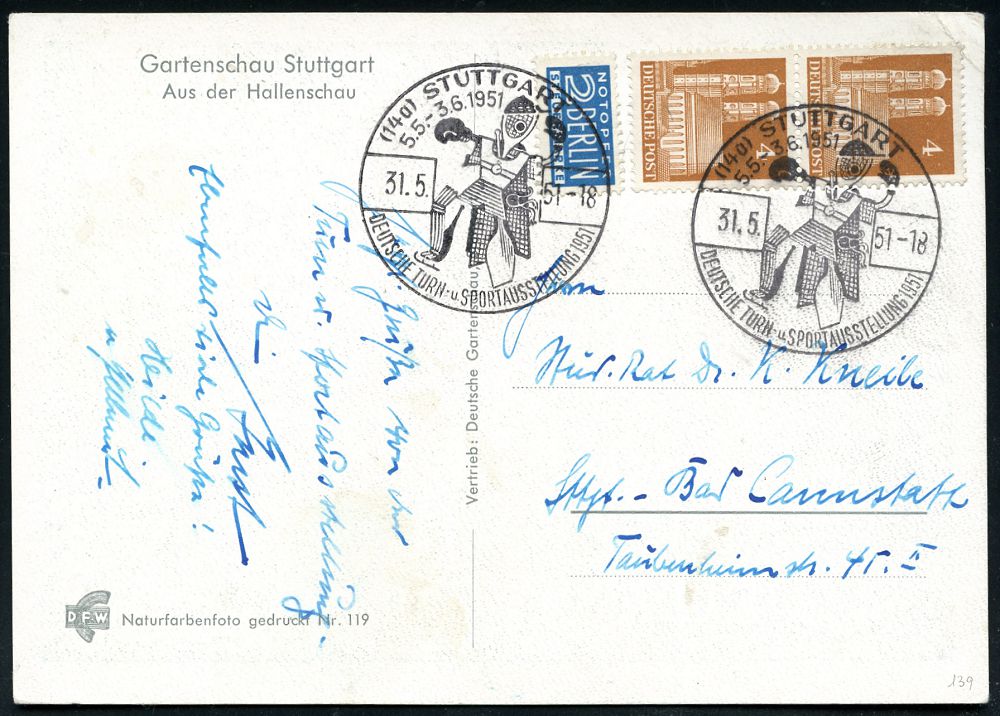 Gartenschau Stuttgart
Aus der Hallenschau
(14a) STUTTGART
5.5.-3.6.1951
31.5. 51-18
DEUTSCHE TURN- u. SPORTAUSSTELLUNG 1951
NOTOPFER
2 BERLIN
STEUERMARKE
DEUTSCHE POST
4
DEUTSCHE POST
4
(14a) STUTTGART
5.5.-3.6.1951
31.5. 51-18
DEUTSCHE TURN- u. SPORTAUSSTELLUNG 1951
Grüße von der
Turn u. Sportausstellung.
Ernst
Ebenfalls viele Grüße!
Heide
u. Helmut.
Vertrieb: Deutsche Gartenschau,
Herrn
Stud. Rat Dr. K. Kneile
Sttgt. - Bad Cannstatt
Taubenheimstr. 45. II
DFW
Naturfarbenfoto gedruckt Nr. 119
139